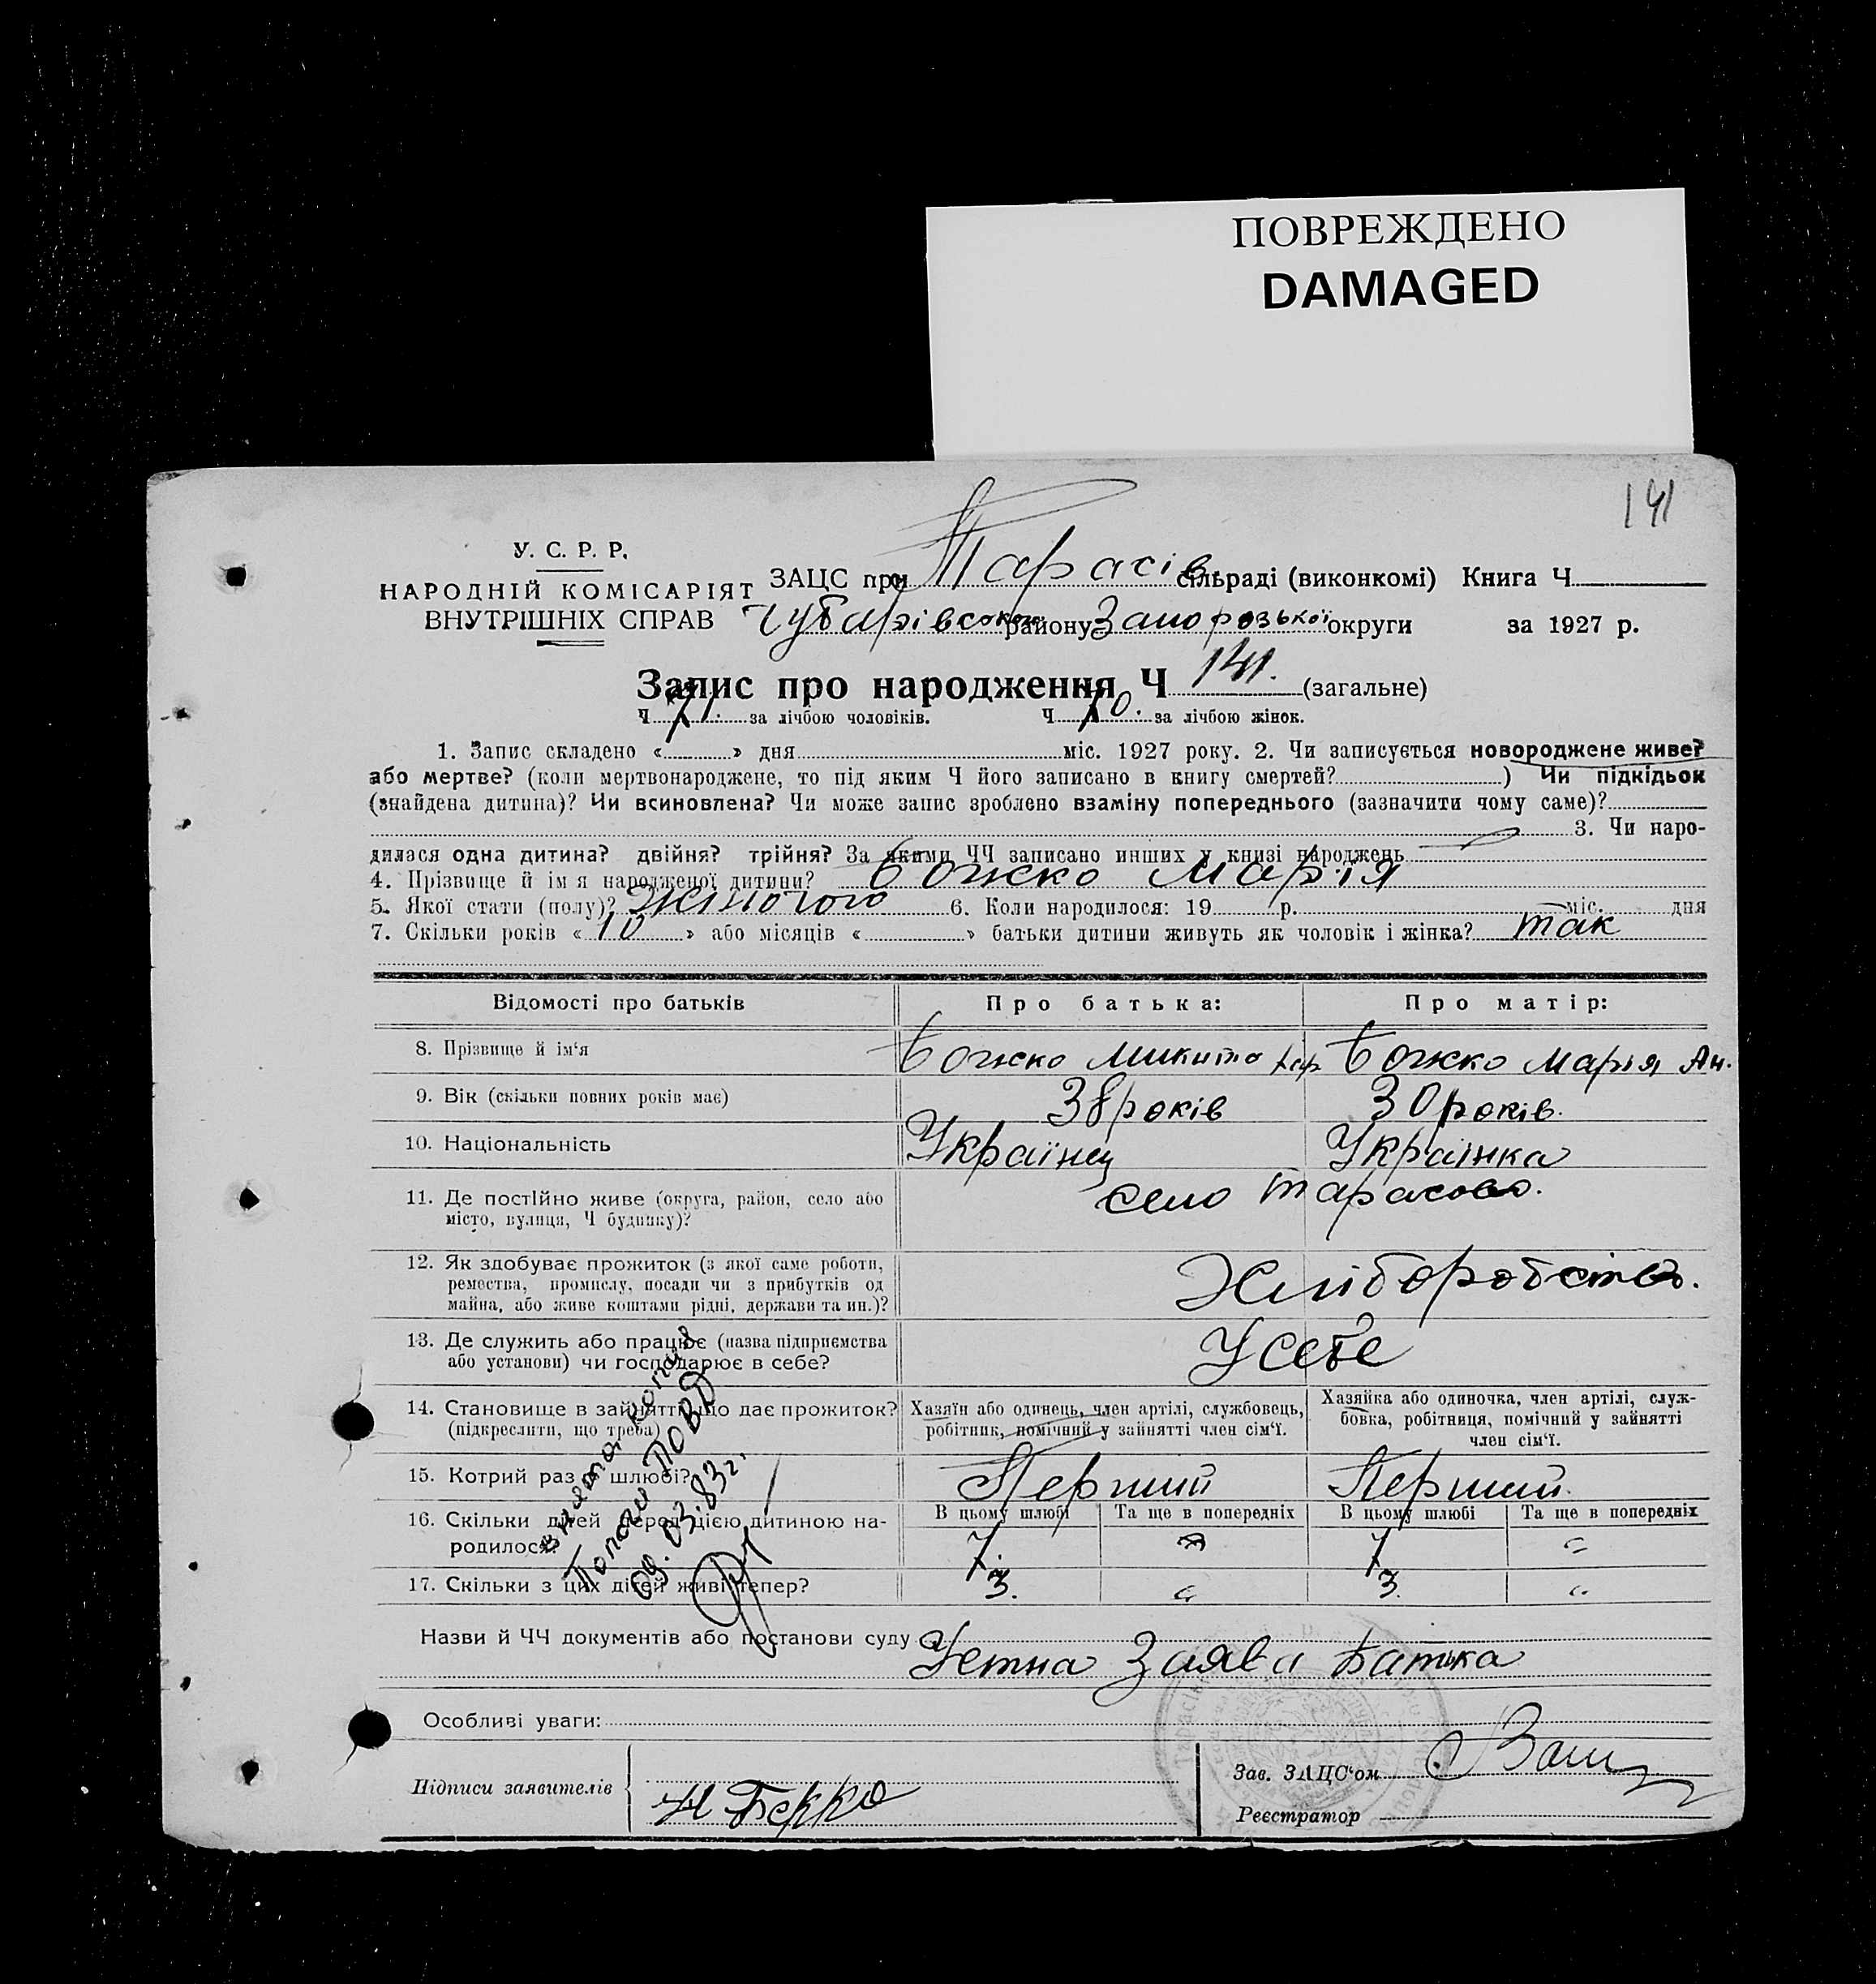 ПОВРЕЖДЕНО
DAMAGED
141
У. С. Р. Р.
НАРОДНІЙ КОМІСАРІЯТ
ВНУТРІШНІХ СПРАВ
ЗАЦС при Тарасів сільраді (виконкомі) Книга Ч
Чубарівською району Запорозької округи за 1927 р.
Запис про народження Ч 141. (загальне)
Ч 71. за лічбою чоловіків. Ч 70. за лічбою жінок.
1. Запис складено « » дня міс. 1927 року. 2. Чи записується новороджене живе?
або мертве? (коли мертвонароджене, то під яким Ч його записано в книгу смертей? ) Чи підкідьок
(знайдена дитина)? Чи всиновлена? Чи може запис зроблено взаміну попереднього (зазначити чому саме)?
3. Чи наро-
дилася одна дитина? двійня? трійня? За якими ЧЧ записано инших у книзі народжень
4. Прізвище й ім я народженої дитини? Божко Марія
5. Якої стати (полу)? Жіночого 6. Коли народилося: 19 р. міс. дня
7. Скільки років « 10 » або місяців « » батьки дитини живуть як чоловік і жінка? так
Відомості про батьків Про батька: Про матір:
8. Прізвище й ім‘я Божко Микита Божко Марія Ан.
9. Вік (скільки повних років має) 38 років 30 років.
10. Національність Українец Українка
11. Де постійно живе (округа, район, село або
місто, вулиця, Ч будинку)?
село Тарасово.
12. Як здобуває прожиток (з якої саме роботи,
ремества, промислу, посади чи з прибутків од
майна, або живе коштами рідні, держави та ин.)?
Хліборобство.
13. Де служить або працює (назва підприємства
або установи) чи господарює в себе?
У себе
14. Становище в зайнятті, що дає прожиток?
(підкреслити, що треба)
Хазяїн або одинець, член артілі, службовець,
робітник, помічний у зайнятті член сім‘ї.
Хазяйка або одиночка, член артілі, служ-
бовка, робітниця, помічний у зайнятті
член сім‘ї.
15. Котрий раз у шлюбі? Перший Перший.
16. Скільки дітей перед цією дитиною на-
родилося?
В цьому шлюбі Та ще в попередніх В цьому шлюбі Та ще в попередніх
7. 7
17. Скільки з цих дітей живі тепер? 3. 3.
внята копия
Пологи ПОВД
09.03.83г.
Назви й ЧЧ документів або постанови суду
Устна Заява батька
Особливі уваги:
Підписи заявителів
Зав. ЗАЦС‘ом
Реєстратор